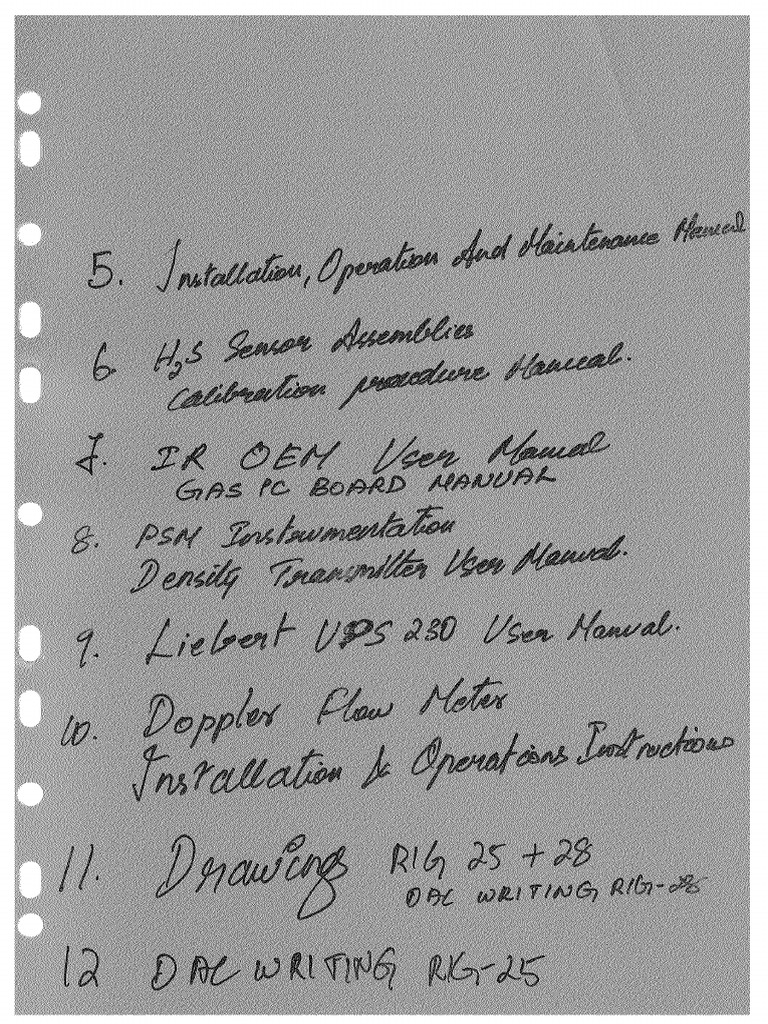 5. Installation, Operation And Maintenance Manual
6. H2S Sensor Assemblies
Calibration procedure Manual.
7. IR OEM User Manual
GAS PC BOARD MANUAL
8. PSM Instrumentation
Density Transmitter User Manual.
9. Liebert UPS 230 User Manual.
10. Doppler Flow Meter
Installation & Operations Instructions
11. Drawings RIG 25 + 28
DAC WRITING RIG-28
12 DAC WRITING RIG-25